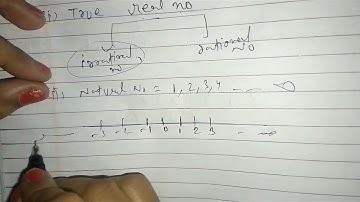 (i) True real no
irrational no
rational no
(ii) Natural no = 1, 2, 3, 4 --- ∞
-3 -2 -1 0 1 2 3 - ∞